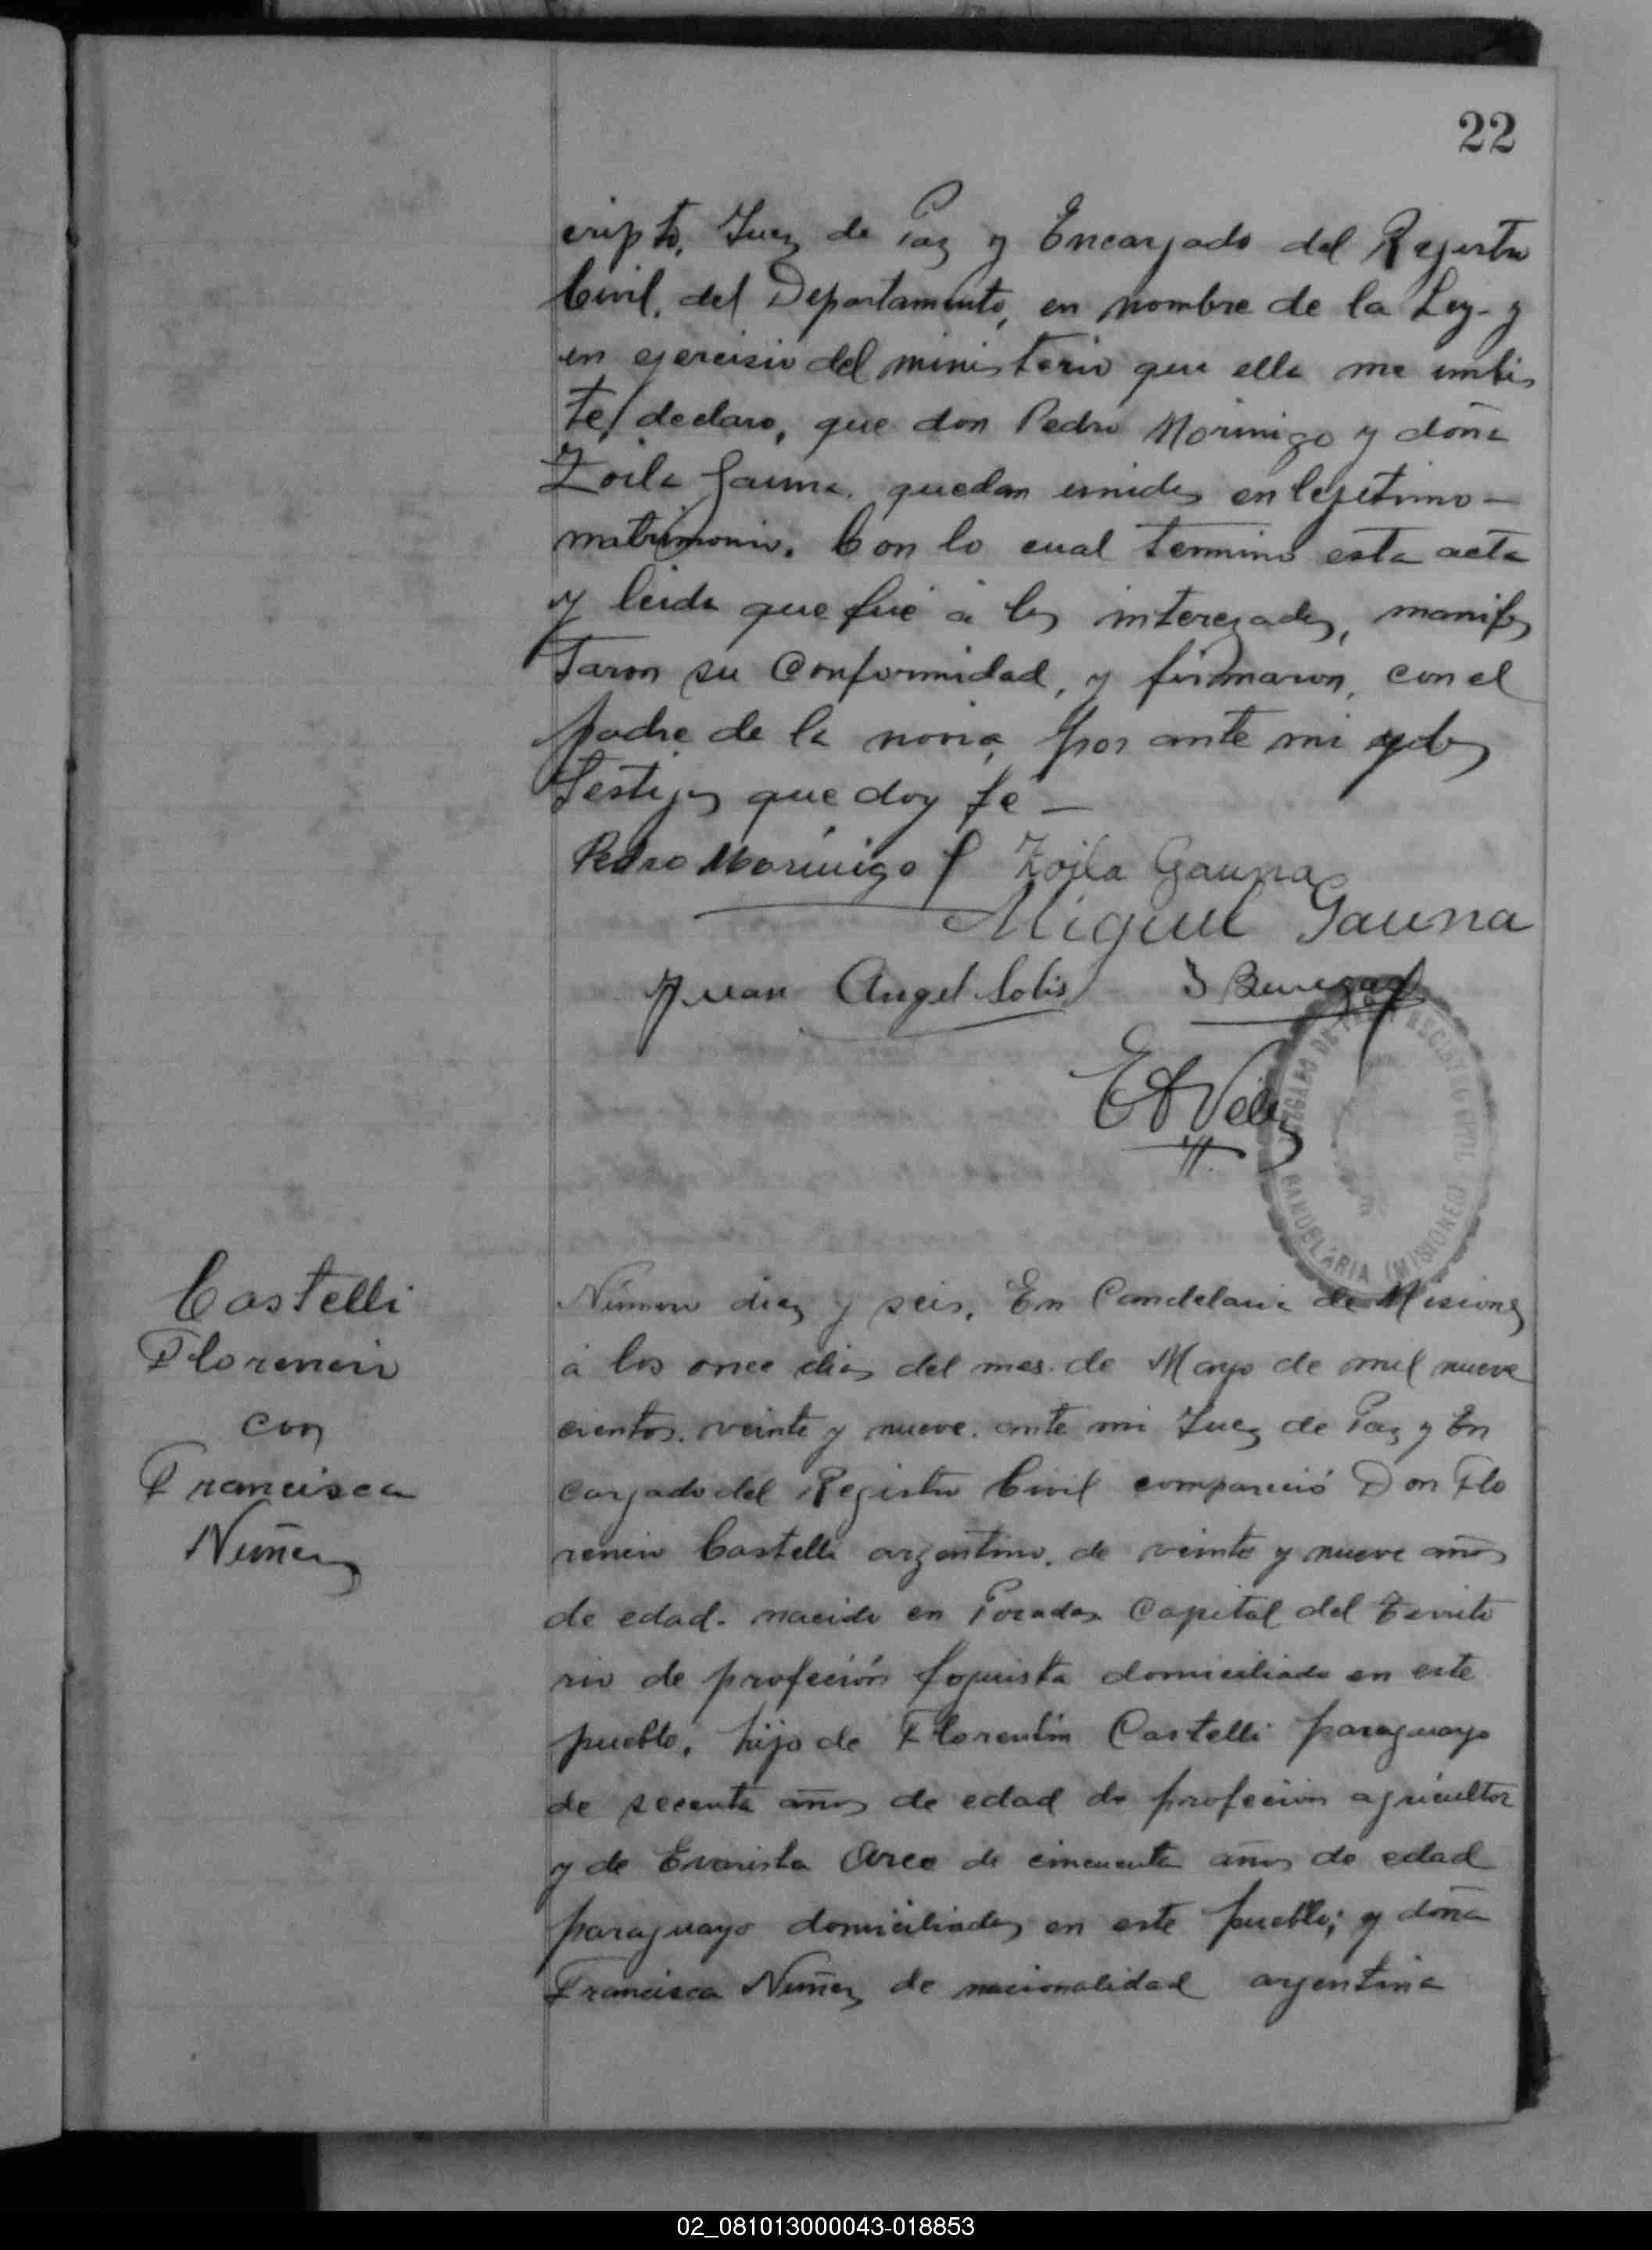 22
cripto, Juez de Paz y Encargado del Rejistro
Civil, del Departamento, en nombre de la Ley - y
en ejercisio del ministerio que ella me imbis
te, declaro, que don Pedro Morinigo y doña
Zoila Gauna, quedan unidos en lejitimo -
matrimonio. Con lo cual termino esta acta
y leida que fué a los interezados, manifes
taron su Conformidad, y firmaron, con el
padre de la novia, por ante mi y los
testijos que doy fé -
Pedro Morinigo Zoila Gauna
Miguel Gauna
Juan Angel Solis
E A Velez
JUZGADO DE PAZ Y REGISTRO CIVIL
CANDELARIA (MISIONES)
Castelli
Florencio
con
Francisca
Nuñez
Número diez y seis. En Candelaria de Misiones
á los once dias del mes de Mayo de mil nueve
cientos veinte y nueve. ante mi Juez de Paz y En
cargado del Registro Civil compareció Don Flo
rencio Castelli argentino, de veinte y nueve años
de edad. nacido en Posadas Capital del Territo
rio de profeción foguista domiciliado en este
pueblo, hijo de Florentín Castelli paraguayo
de secenta años de edad de profeción agricultor
y de Evarista Arce de cincuenta años de edad
paraguayo domiciliados en este pueblo; y doña
Francisca Nuñez de nacionalidad argentina
02_081013000043-018853